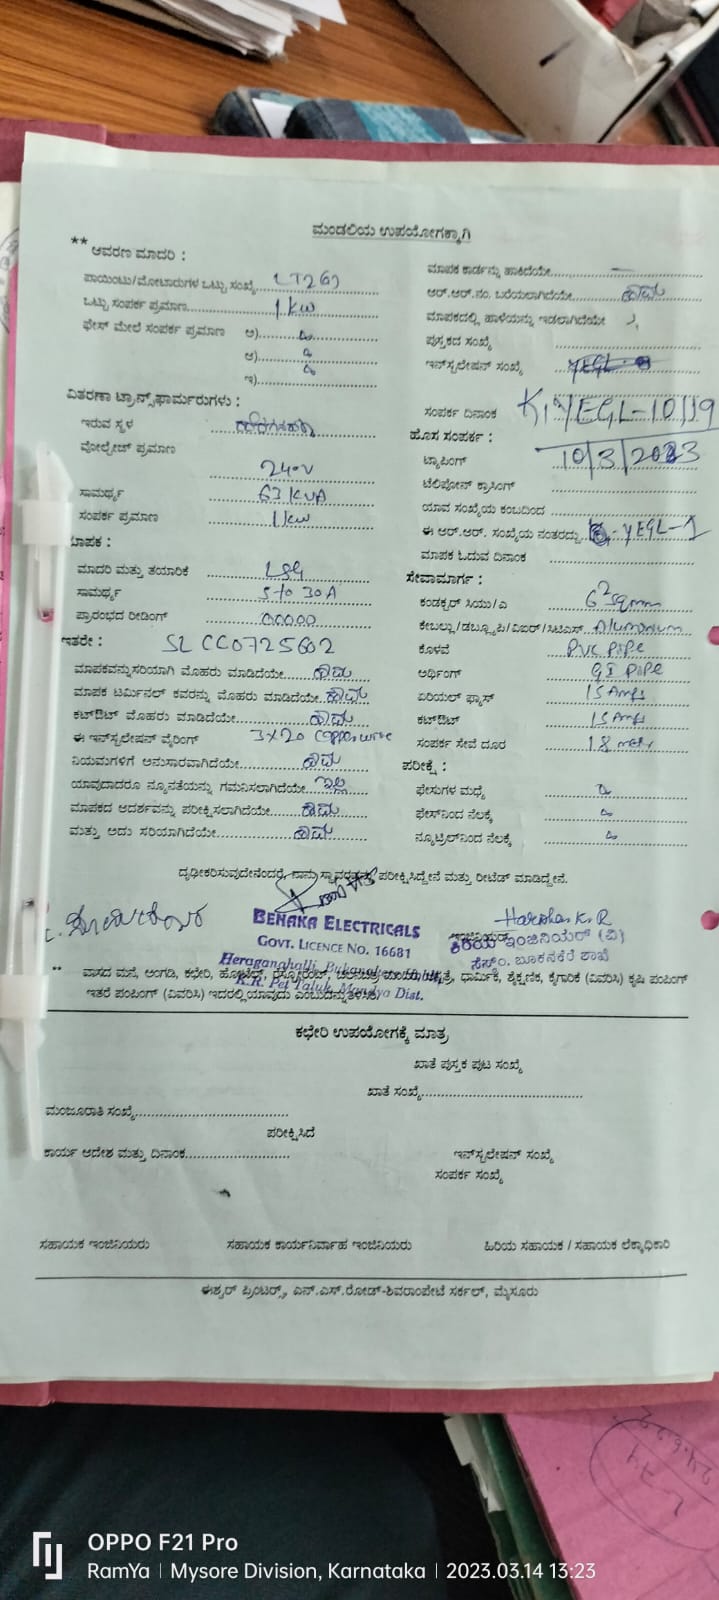 ಮಂಡಲಿಯ ಉಪಯೋಗಕ್ಕಾಗಿ
** ಆವರಣ ಮಾದರಿ :
ಪಾಯಿಂಟು/ಮೋಟಾರುಗಳ ಒಟ್ಟು ಸಂಖ್ಯೆ
ಒಟ್ಟು ಸಂಪರ್ಕ ಪ್ರಮಾಣ 1 kw
ಫೇಸ್ ಮೇಲೆ ಸಂಪರ್ಕ ಪ್ರಮಾಣ ಅ)
ಆ)
ಇ)
ವಿತರಣಾ ಟ್ರಾನ್ಸ್‌ಫಾರ್ಮರುಗಳು :
ಇರುವ ಸ್ಥಳ
ವೋಲ್ಟೇಜ್ ಪ್ರಮಾಣ
240V
ಸಾಮರ್ಥ್ಯ 63 KVA
ಸಂಪರ್ಕ ಪ್ರಮಾಣ 1 kw
ಮಾಪಕ :
ಮಾದರಿ ಮತ್ತು ತಯಾರಿಕೆ L&G
ಸಾಮರ್ಥ್ಯ 5 to 30A
ಪ್ರಾರಂಭದ ರೀಡಿಂಗ್ 00000
ಇತರೇ : SL CC0725602
ಮಾಪಕವನ್ನುಸರಿಯಾಗಿ ಮೊಹರು ಮಾಡಿದೆಯೇ ಹೌದು
ಮಾಪಕ ಟರ್ಮಿನಲ್ ಕವರನ್ನು ಮೊಹರು ಮಾಡಿದೆಯೇ ಹೌದು
ಕಟ್‌ಔಟ್ ಮೊಹರು ಮಾಡಿದೆಯೇ ಹೌದು
ಈ ಇನ್‌ಸ್ಟಲೇಷನ್ ವೈರಿಂಗ್ 3x20 Copper wire
ನಿಯಮಗಳಿಗೆ ಅನುಸಾರವಾಗಿದೆಯೇ ಹೌದು
ಯಾವುದಾದರೂ ನ್ಯೂನತೆಯನ್ನು ಗಮನಿಸಲಾಗಿದೆಯೇ ಇಲ್ಲ
ಮಾಪಕದ ಆದರ್ಶವನ್ನು ಪರೀಕ್ಷಿಸಲಾಗಿದೆಯೇ ಹೌದು
ಮತ್ತು ಅದು ಸರಿಯಾಗಿದೆಯೇ ಹೌದು
ಮಾಪಕ ಕಾರ್ಡನ್ನು ಹಾಕಿದೆಯೇ
ಆರ್.ಆರ್.ನಂ. ಬರೆಯಲಾಗಿದೆಯೇ ಹೌದು
ಮಾಪಕದಲ್ಲಿ ಹಾಳೆಯನ್ನು ಇಡಲಾಗಿದೆಯೇ
ಪುಸ್ತಕದ ಸಂಖ್ಯೆ
ಇನ್‌ಸ್ಟಲೇಷನ್ ಸಂಖ್ಯೆ
ಸಂಪರ್ಕ ದಿನಾಂಕ YEGL-10119
ಹೊಸ ಸಂಪರ್ಕ :
ಟ್ಯಾಪಿಂಗ್ 10/3/2023
ಟೆಲಿಫೋನ್ ಕ್ರಾಸಿಂಗ್
ಯಾವ ಸಂಖ್ಯೆಯ ಕಂಬದಿಂದ
ಈ ಆರ್.ಆರ್. ಸಂಖ್ಯೆಯ ನಂತರದ್ದು YEGL-1
ಮಾಪಕ ಓದುವ ದಿನಾಂಕ
ಸೇವಾಮಾರ್ಗ :
ಕಂಡಕ್ಟರ್ ಸಿಯು/ಎ 6² sqmm
ಕೇಬಲ್ಲು/ಡಬ್ಲ್ಯೂಪಿ/ವಿಐಆರ್/ಸಿಟಿಎಸ್ Aluminium
ಕೊಳವೆ PVC Pipe
ಅರ್ಥಿಂಗ್ GI Pipe
ಏರಿಯಲ್ ಫ್ಯೂಸ್ 15 Amps
ಕಟ್‌ಔಟ್ 15 Amps
ಸಂಪರ್ಕ ಸೇವೆ ದೂರ 18
ಪರೀಕ್ಷೆ :
ಫೇಸುಗಳ ಮಧ್ಯೆ
ಫೇಸ್‌ನಿಂದ ನೆಲಕ್ಕೆ
ನ್ಯೂಟ್ರಲ್‌ನಿಂದ ನೆಲಕ್ಕೆ
ದೃಢೀಕರಿಸುವುದೇನೆಂದರೆ, ನಾನು ಸ್ಥಾವರವನ್ನು ಪರೀಕ್ಷಿಸಿದ್ದೇನೆ ಮತ್ತು ರೀಟೆಡ್ ಮಾಡಿದ್ದೇನೆ.
BENAKA ELECTRICALS
GOVT. LICENCE NO. 16681
Heraganahalli, Bukanakere Hobli,
K.R. Pet Taluk, Mandya Dist.
Harsha K.R
ಕಿರಿಯ ಇಂಜಿನಿಯರ್ (ವಿ)
ಸೆಸ್ಕಾಂ. ಬೂಕನಕೆರೆ ಶಾಖೆ
** ವಾಸದ ಮನೆ, ಅಂಗಡಿ, ಕಛೇರಿ, ಹೋಟೆಲ್, ರೆಸ್ಟೋರೆಂಟ್, ಧಾರ್ಮಿಕ, ಶೈಕ್ಷಣಿಕ, ಕೈಗಾರಿಕೆ (ವಿವರಿಸಿ) ಕೃಷಿ ಪಂಪಿಂಗ್
ಇತರೆ ಪಂಪಿಂಗ್ (ವಿವರಿಸಿ) ಇದರಲ್ಲಿಯಾವುದು ಎಂಬುದನ್ನು ತಿಳಿಸಿರಿ
ಕಛೇರಿ ಉಪಯೋಗಕ್ಕೆ ಮಾತ್ರ
ಖಾತೆ ಪುಸ್ತಕ ಪುಟ ಸಂಖ್ಯೆ
ಖಾತೆ ಸಂಖ್ಯೆ
ಮಂಜೂರಾತಿ ಸಂಖ್ಯೆ
ಪರೀಕ್ಷಿಸಿದೆ
ಕಾರ್ಯ ಆದೇಶ ಮತ್ತು ದಿನಾಂಕ
ಇನ್‌ಸ್ಟಲೇಷನ್ ಸಂಖ್ಯೆ
ಸಂಪರ್ಕ ಸಂಖ್ಯೆ
ಸಹಾಯಕ ಇಂಜಿನಿಯರು ಸಹಾಯಕ ಕಾರ್ಯನಿರ್ವಾಹ ಇಂಜಿನಿಯರು ಹಿರಿಯ ಸಹಾಯಕ / ಸಹಾಯಕ ಲೆಕ್ಕಾಧಿಕಾರಿ
ಈಶ್ವರ್ ಪ್ರಿಂಟರ್ಸ್, ಎನ್.ಎಸ್.ರೋಡ್-ಶಿವರಾಂಪೇಟೆ ಸರ್ಕಲ್, ಮೈಸೂರು
OPPO F21 Pro
RamYa | Mysore Division, Karnataka | 2023.03.14 13:23